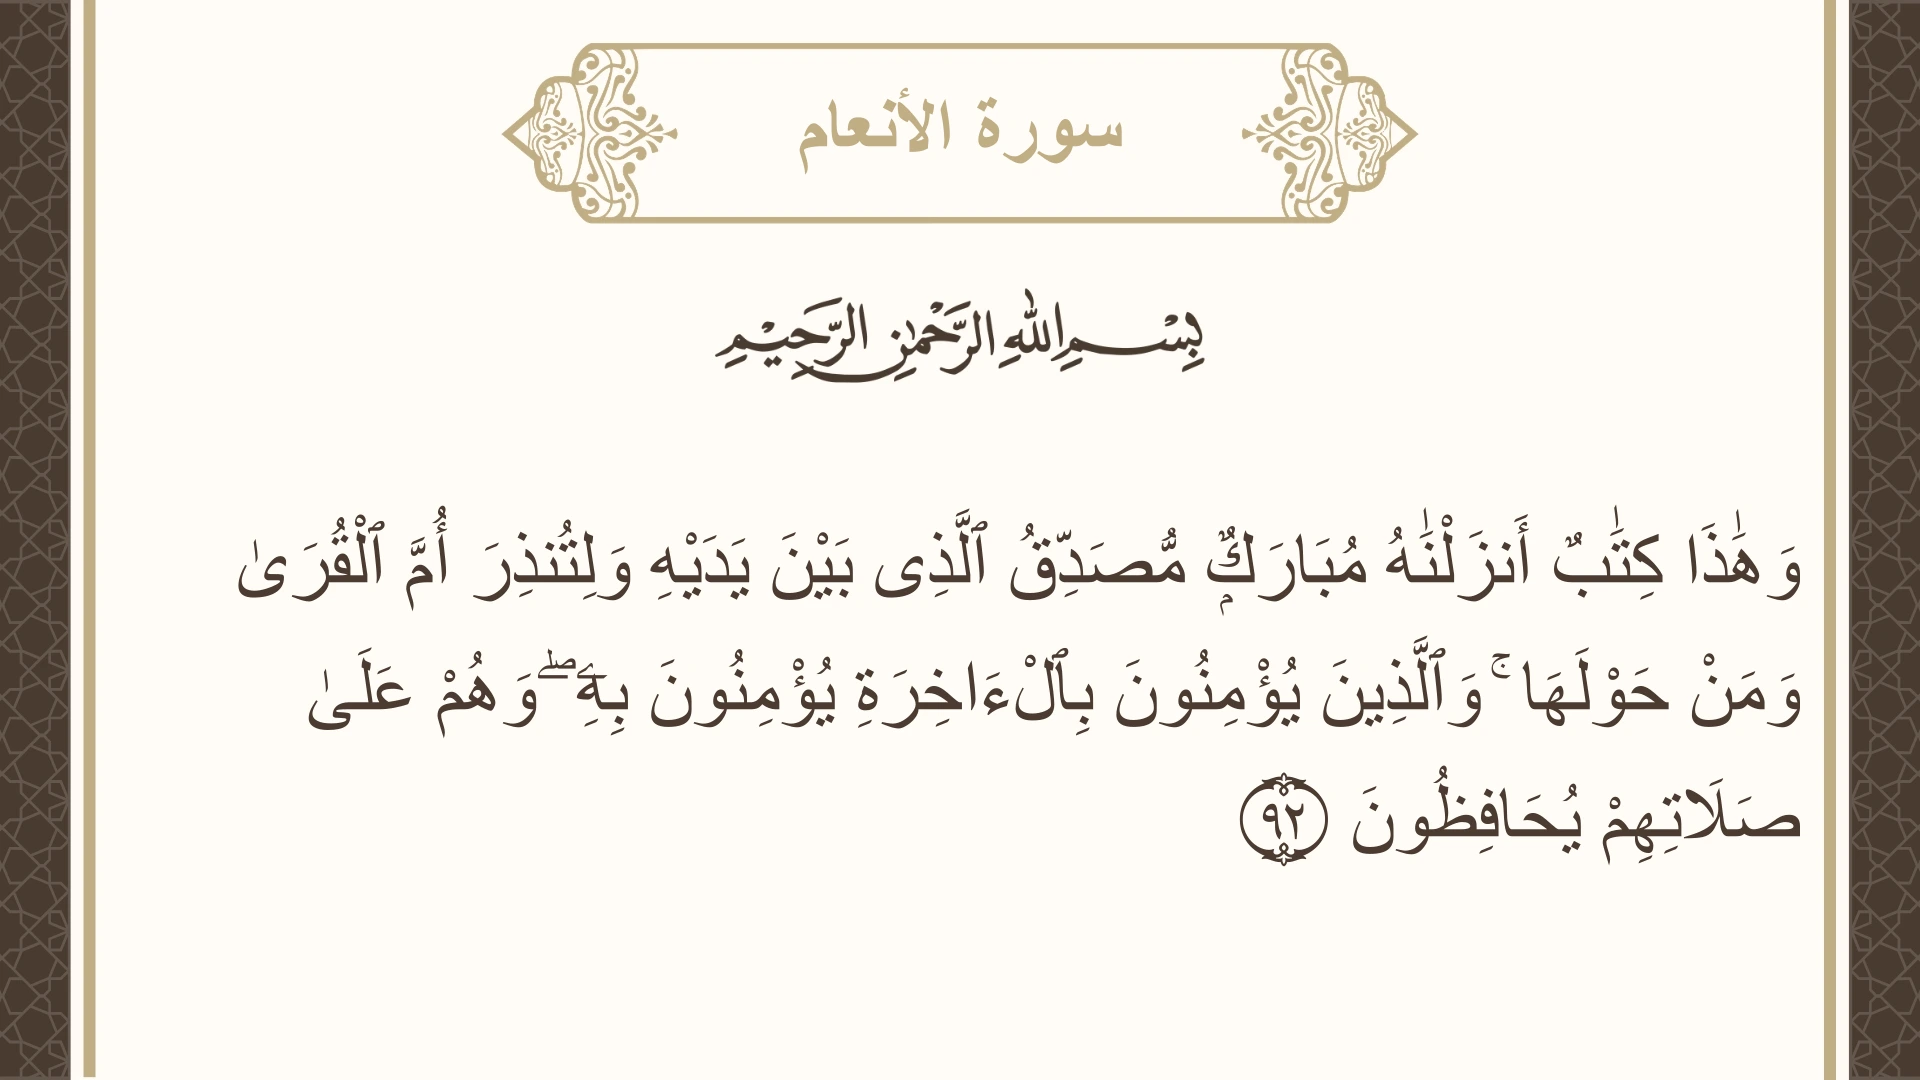 سورة الأنعام
بِسْمِ اللهِ الرَّحْمٰنِ الرَّحِيْمِ
وَهَٰذَا كِتَٰبٌ أَنزَلْنَٰهُ مُبَارَكٌۭ مُّصَدِّقُ ٱلَّذِى بَيْنَ يَدَيْهِ وَلِتُنذِرَ أُمَّ ٱلْقُرَىٰ
وَمَنْ حَوْلَهَا ۚ وَٱلَّذِينَ يُؤْمِنُونَ بِٱلْءَاخِرَةِ يُؤْمِنُونَ بِهِۦ ۖ وَهُمْ عَلَىٰ
صَلَاتِهِمْ يُحَافِظُونَ ٩٢